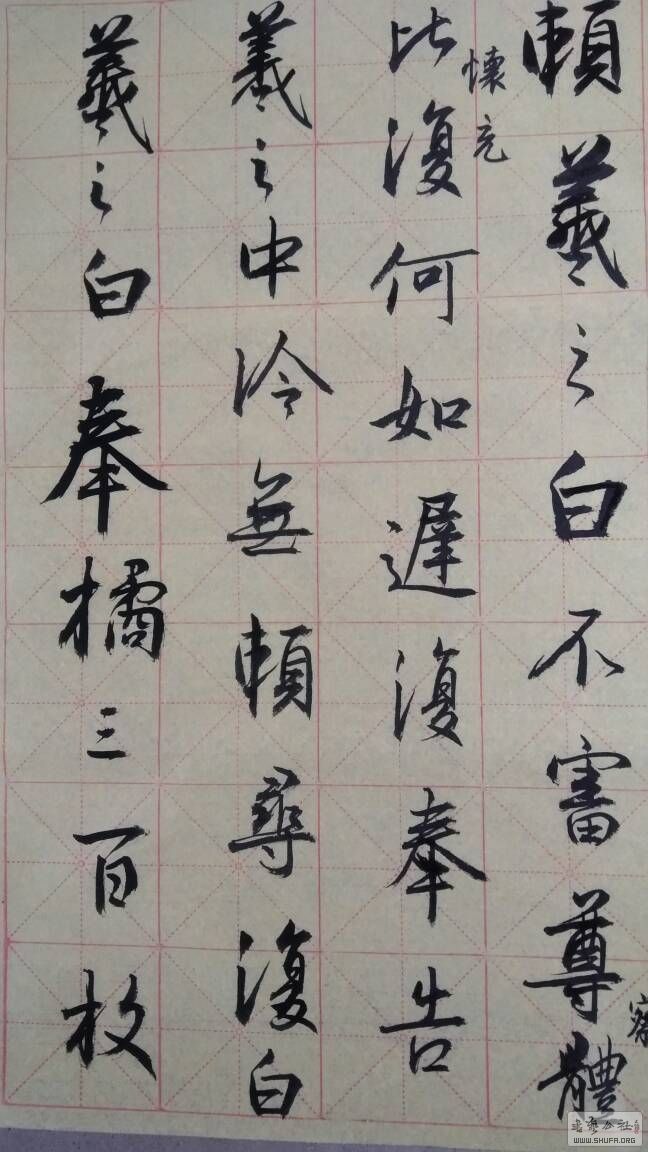 頼羲之白不審尊體
比復何如遲復奉告
羲之中冷無頼尋復白
羲之白奉橘三百枚
懷充
察
書藝公社
WWW.SHUFA.ORG